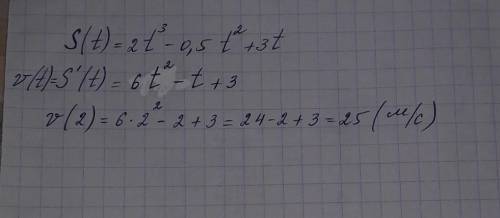 S(t) = 2t³ - 0,5t² + 3t
v(t) = S'(t) = 6t² - t + 3
v(2) = 6·2² - 2 + 3 = 24 - 2 + 3 = 25 (м/с)